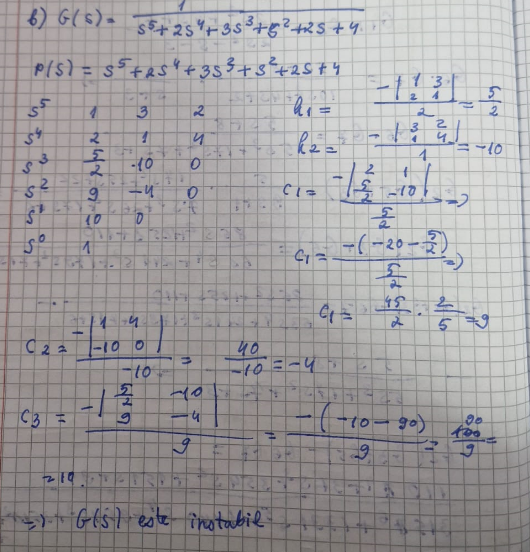 b) G(s) = 1 / s⁵+2s⁴+3s³+s²+2s+4
P(s) = s⁵+2s⁴+3s³+s²+2s+4
s⁵ 1 3 2
s⁴ 2 1 4
s³ 5/2 -10 0
s² 9 -4 0
s¹ 10 0
s⁰ 1
h₁ = -|1 3; 2 1| / 2 = 5/2
h₂ = -|3 2; 1 4| / 1 = -10
c₁ = -|2 1; 5/2 -10| / 5/2 =>
c₁ = -(-20 - 5/2) / 5/2 =>
c₁ = 45/2 · 2/5 = 9
c₂ = -|1 4; -10 0| / -10 = 40/-10 = -4
c₃ = -|5/2 -10; 9 -4| / 9 = -(-10 - 90) / 9 = 90/9 =
= 10.
=> G(s) este instabil